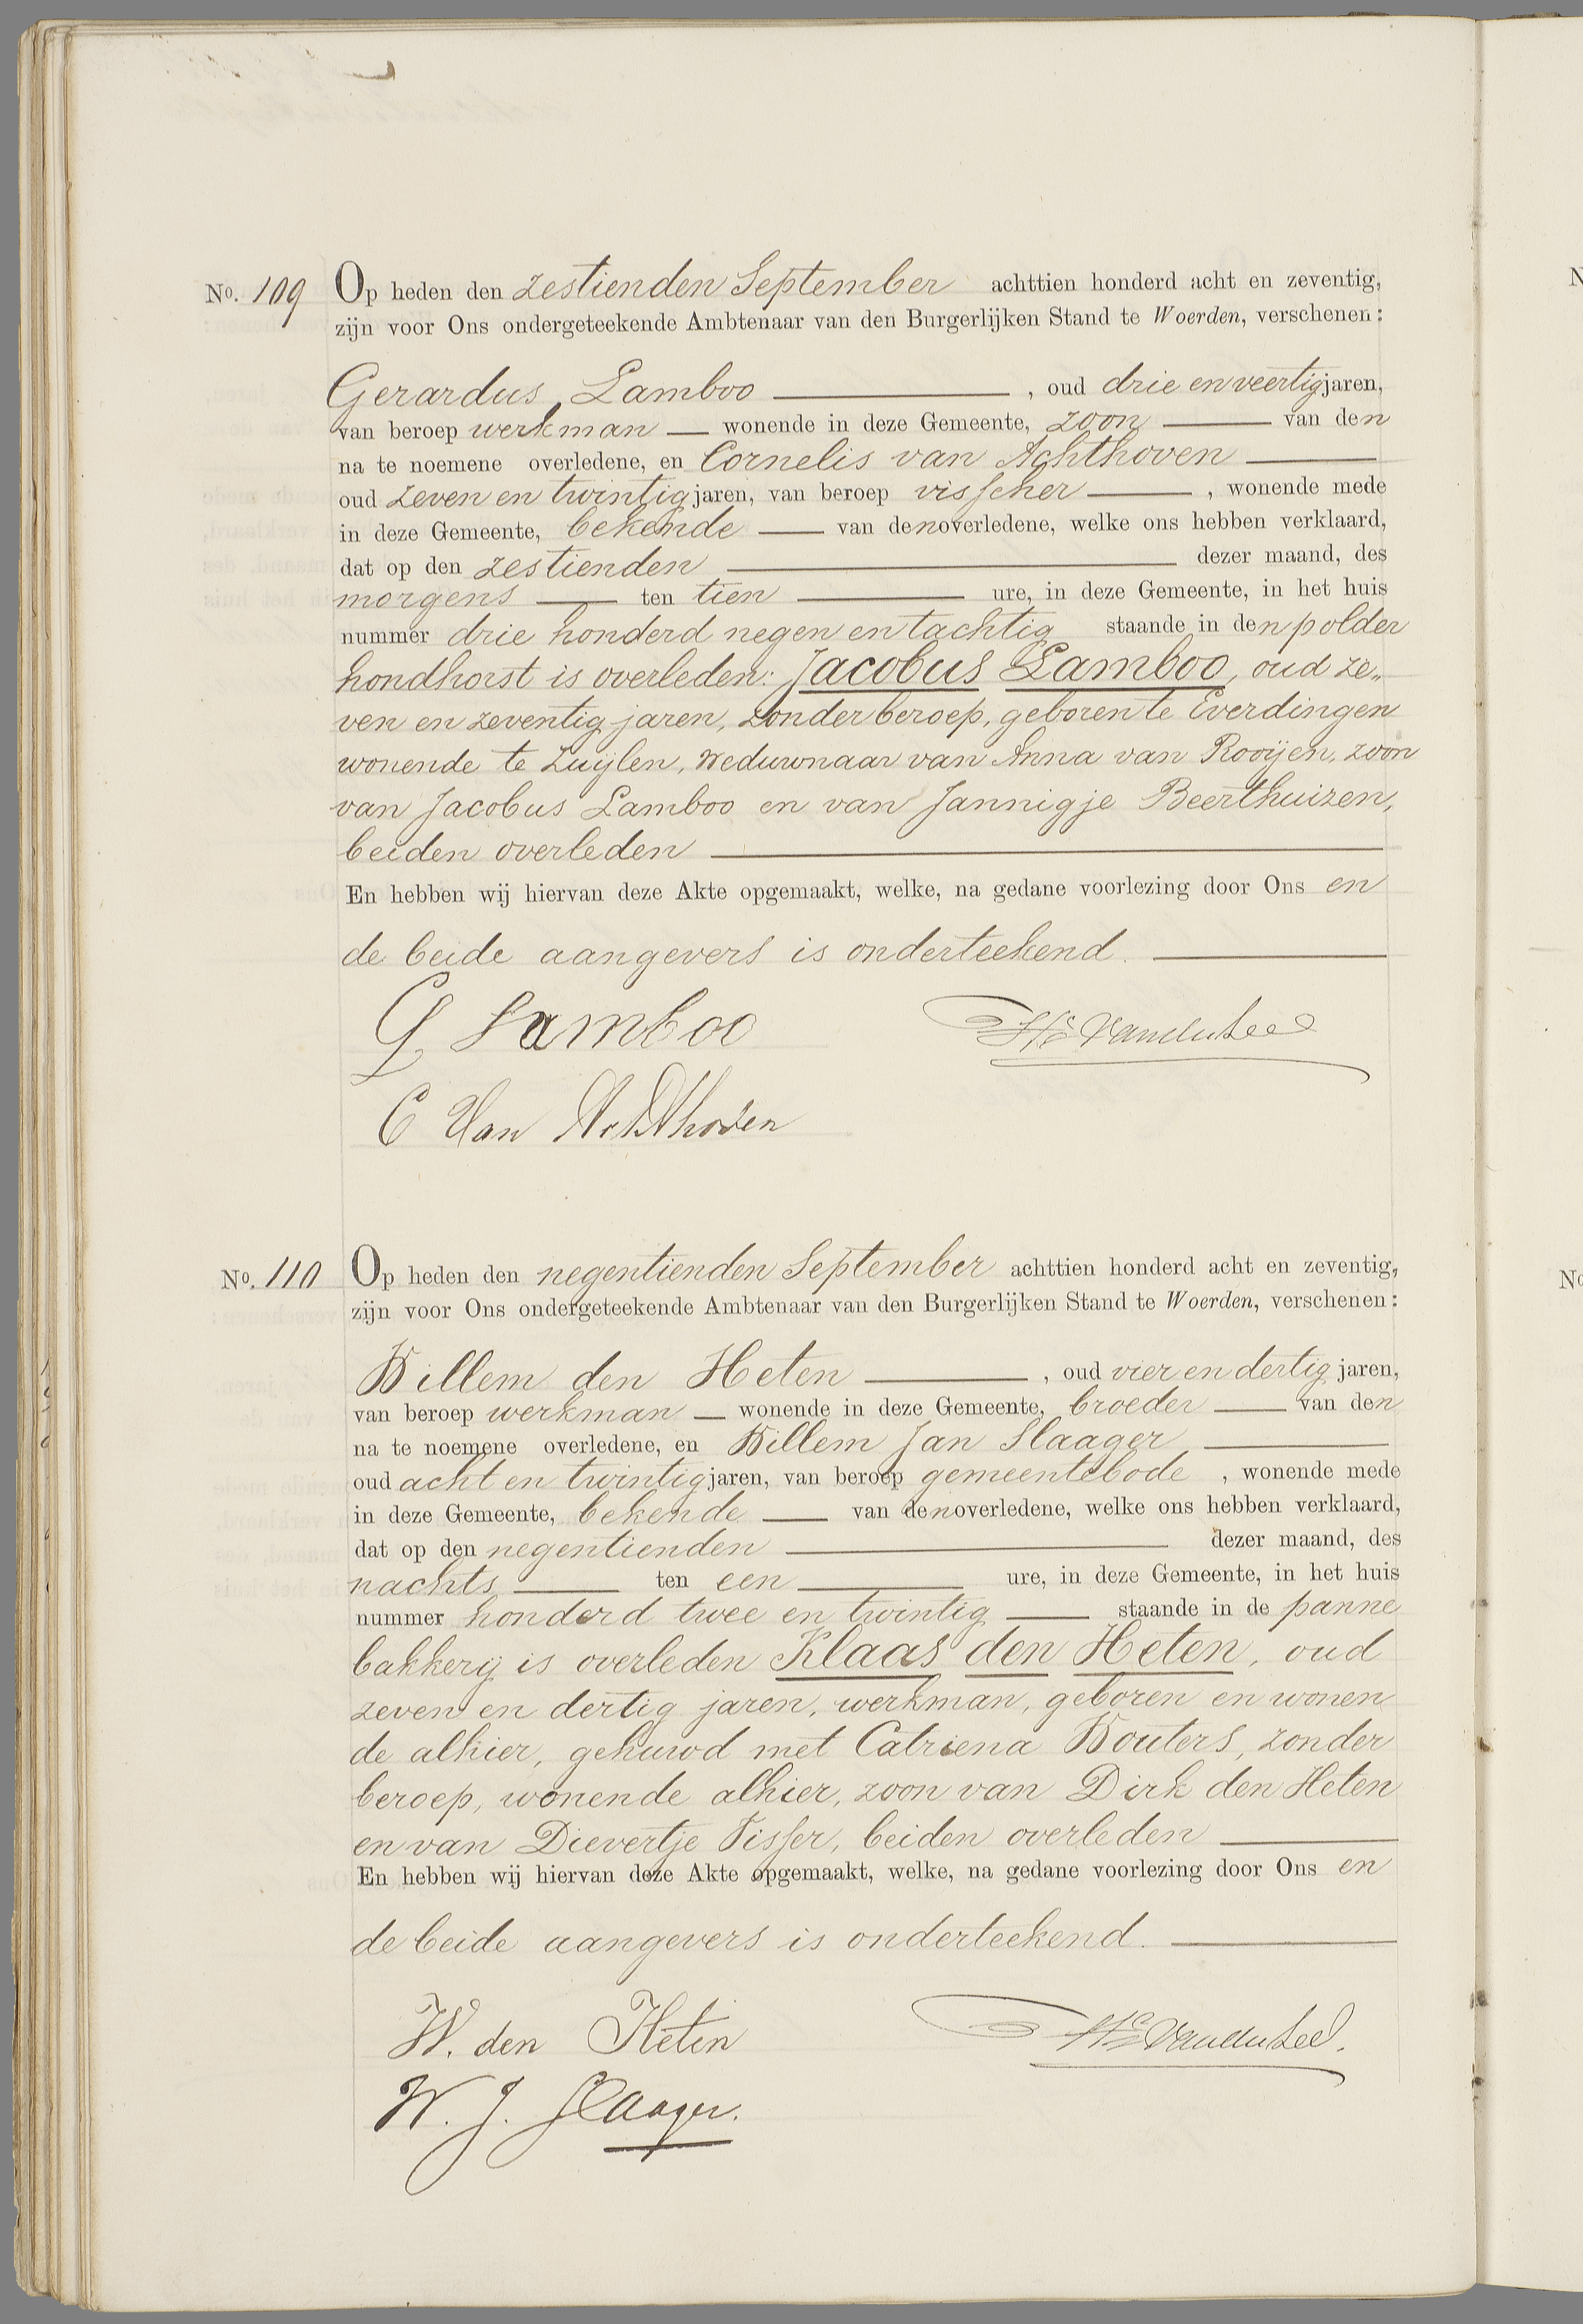 No. 109 Op heden den zestienden September achttien honderd acht en zeventig,
zijn voor Ons ondergeteekende Ambtenaar van den Burgerlijken Stand te Woerden, verschenen:
Gerardus Lamboo , oud drie en veertig jaren,
van beroep werkman wonende in deze Gemeente, zoon van den
na te noemene overledene, en Cornelis van Achthoven
oud zeven en twintig jaren, van beroep visscher , wonende mede
in deze Gemeente, bekende van den overledene, welke ons hebben verklaard,
dat op den zestienden dezer maand, des
morgens ten tien ure, in deze Gemeente, in het huis
nummer drie honderd negen en tachtig staande in den polder
hondhorst is overleden: Jacobus Lamboo, oud ze„
ven en zeventig jaren, zonder beroep, geboren te Everdingen
wonende te Zuylen, weduwnaar van Anna van Rooijen, zoon
van Jacobus Lamboo en van Jannigje Beerthuizen,
beiden overleden
En hebben wij hiervan deze Akte opgemaakt, welke, na gedane voorlezing door Ons en
de beide aangevers is onderteekend.
G Lamboo
C Van Achthoven
No. 110 Op heden den negentienden September achttien honderd acht en zeventig,
zijn voor Ons ondergeteekende Ambtenaar van den Burgerlijken Stand te Woerden, verschenen:
Willem den Heten , oud vier en dertig jaren,
van beroep werkman wonende in deze Gemeente, broeder van den
na te noemene overledene, en Willem Jan Slaager
oud acht en twintig jaren, van beroep gemeentebode , wonende mede
in deze Gemeente, bekende van den overledene, welke ons hebben verklaard,
dat op den negentienden dezer maand, des
nachts ten een ure, in deze Gemeente, in het huis
nummer honderd twee en twintig staande in de panne
bakkerij is overleden Klaas den Heten, oud
zeven en dertig jaren, werkman, geboren en wonen
de alhier, gehuwd met Catriena Wouters, zonder
beroep, wonende alhier, zoon van Dirk den Heten
en van Dievertje Visser, beiden overleden
En hebben wij hiervan deze Akte opgemaakt, welke, na gedane voorlezing door Ons en
de beide aangevers is onderteekend.
W. den Heten
W. J. Slaager.